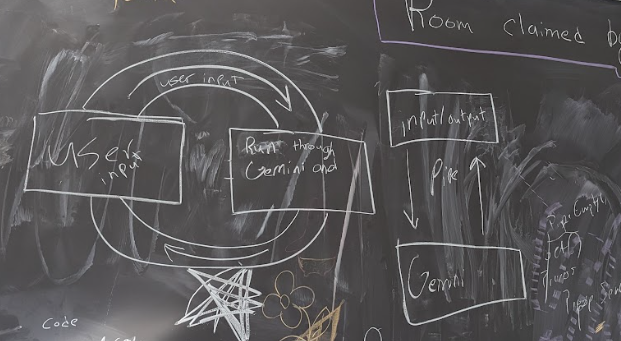 Room claimed
user input
User
input
Run through
Gemini and
input/output
Pipe
Gemini
Code